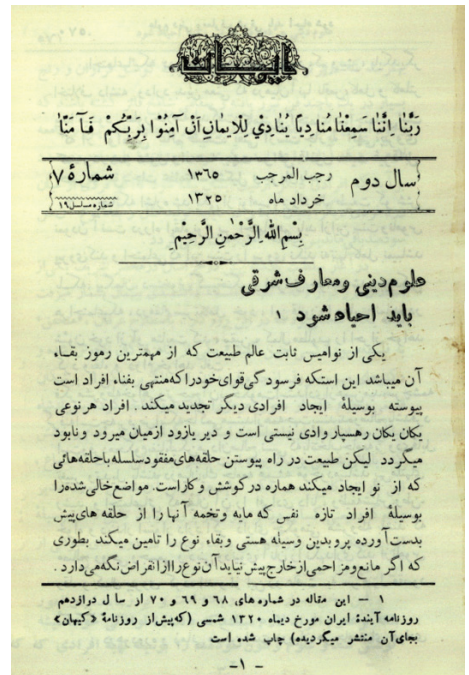 ایمان
رَبَّنٰا اِنَّنٰا سَمِعْنٰا مُنٰادِیاً یُنٰادِیْ لِلْاِیمٰانِ اَنْ آمِنُوْا بِرَبِّکُمْ فَآمَنّٰا
سال دوم
رجب المرجب ۱۳۶۵
خرداد ماه ۱۳۲۵
شمارهٔ ۷
شماره مسلسل ۱۹
بِسْمِ اللهِ الرَّحْمٰنِ الرَّحیْمِ
علوم دینی ومعارف شرقی
باید احیاء شود ۱
یکی از نوامیس ثابت عالم طبیعت که از مهمترین رموز بقاء
آن میباشد این استکه فرسودگی قوای خودرا که منتهی بفناء افراد است
پیوسته بوسیلهٔ ایجاد افرادی دیگر تجدید میکند . افراد هر نوعی
یکان یکان رهسپار وادی نیستی است و دیر یازود ازمیان میرود ونابود
میگردد لیکن طبیعت در راه پیوستن حلقه‌های مفقود سلسله باحلقه‌هائی
که از نو ایجاد میکند هماره در کوشش و کاراست. مواضع خالی شده‌را
بوسیلهٔ افراد تازه نفس که مایه وتخمه آنها را از حلقه های پیش
بدست آورده پروبدین وسیله هستی وبقاء نوع را تامین میکند بطوری
که اگر مانع ومزاحمی ازخارج پیش نیاید آن نوع را از انقراض نگه می دارد .
۱ – این مقاله در شماره های ۶۸ و ۶۹ و ۷۰ از سال درازدهم
روزنامه آیندهٔ ایران مورخ دیماه ۱۳۲۰ شمسی (که پیش از روزنامهٔ «کیهان»
بجای آن منتشر میگردیده) چاپ شده است
–۱–